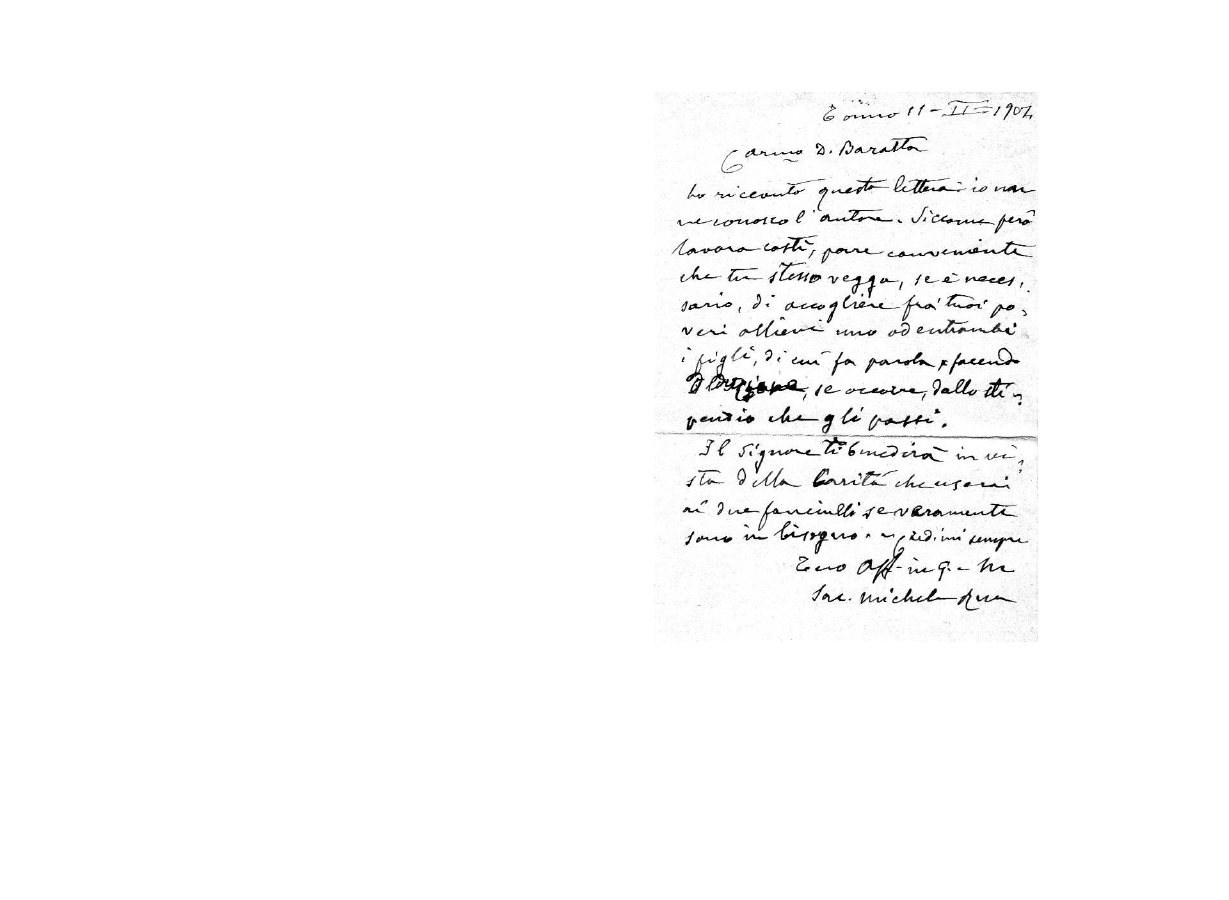 Torino 11-II-1904
Carmo D. Baratta
ho ricevuto questa lettera: io non
ne conosco l'autore. Siccome però
lavora costì, pare conveniente
che tu stesso vegga, se è neces,
sario, di accogliere fra' tuoi po,
veri allievi uno od entrambi
i figli, di cui fa parola, facendo
, se occorre, dallo sti,
pendio che gli passi.
Il Signore ti benedirà in vi,
sta della Carità che userai
ai due fanciulli se veramente
sono in bisogno. credimi sempre
Tuo Aff. in G. e M
Sac. Michele Rua